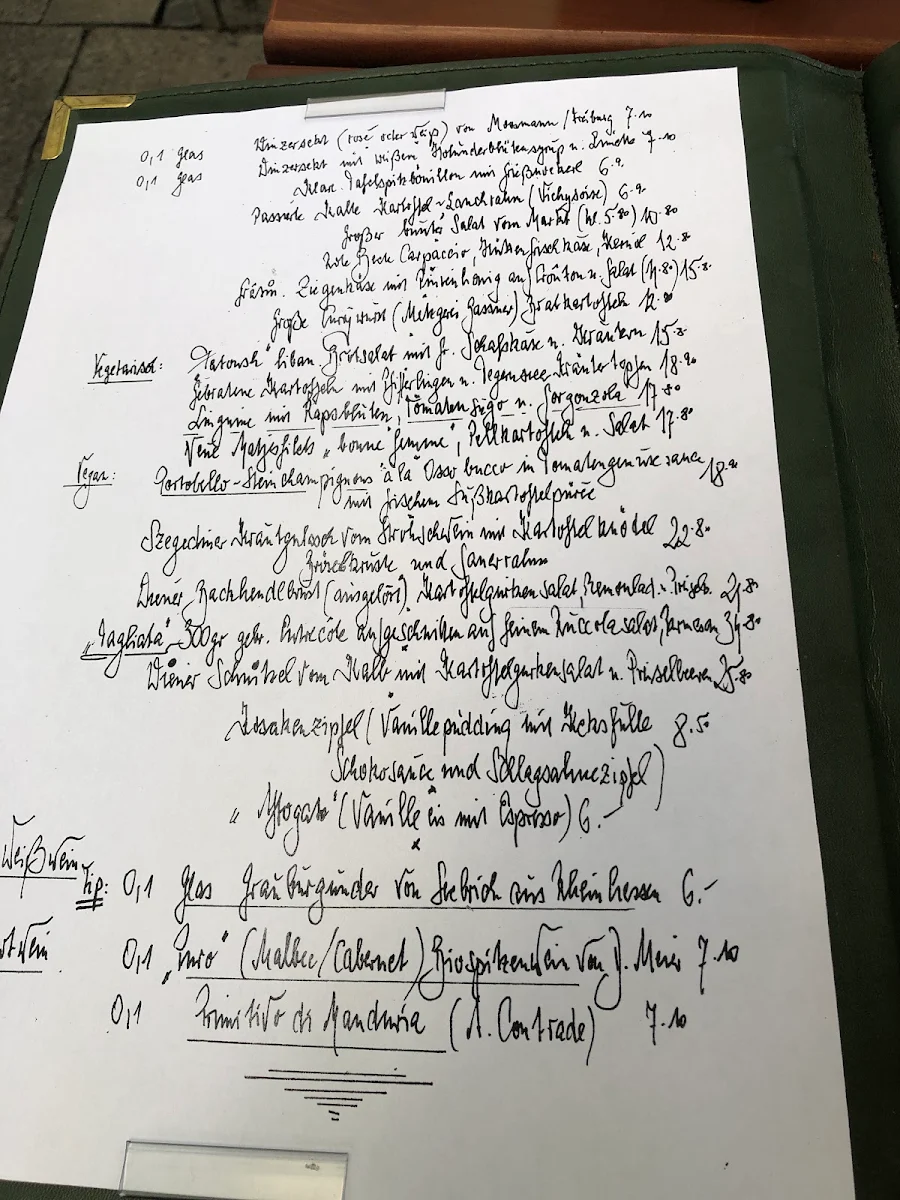 0,1 Glas Winzersekt (rosé oder weiß) von Mossmann / Freiburg 7.10
0,1 Glas Winzersekt mit weißem Holunderblütensyrup u. 7.10
Klare Tafelspitzbouillon mit 6.9
Passierte Kalte Kartoffel-Lauchrahm (Vichysoise) 6.9
Großer bunter Salat vom Markt (kl. 5.80) 10.80
Rote Beete Carpaccio, Hüttenfischkäse, 12.8
Gratin. Ziegenkäse mit auf Croûton u. Salat (11.80) 15.8
Große Currywurst (Metzgerei Gassner) Bratkartoffeln 12.80
Vegetarisch: "Fatoush" liban. Brotsalat mit fr. Schafskäse u. Kräutern 15.8
Gebratene Kartoffeln mit Pfifferlingen u. Tegernseer Kräutertopfen 18.90
Linguine mit Rapsblüten, Tomatensugo u. Gorgonzola 17.80
Neue Matjesfilets "bonne femme", Pellkartoffeln u. Salat 17.80
Vegan: Portobello-Steinchampignons "à la Osso bucco in Tomatengemüsesauce 18.90
mit frischem Süßkartoffelpüree
Szegediner Krautgulasch vom Strohschwein mit Kartoffelknödel 22.80
und Sauerrahm
Wiener Backhendlbrust (ausgelöst), Kartoffelgurkensalat, Remoulad. u. Preiselb. 21.80
"Tagliata" 300gr gebr. Entrecôte aufgeschnitten auf feinem Ruccolasalat, Parmesan 34.80
Wiener Schnitzel vom Kalb mit Kartoffelgurkensalat u. Preiselbeeren 25.80
Kosakenzipfel (Vanillepudding mit Keksfülle 8.50
Schokosauce und Schlagsahnezipfel)
"Affogato" (Vanilleeis mit Espresso) 6.-
Weißwein
Tip: 0,1 Glas Grauburgunder von Seebrich aus Rheinhessen 6.-
0,1 "Puro" (Malbec/Cabernet) Biospitzenwein von D. Meier 7.10
0,1 Primitivo di Manduria (A. Contrade) 7.10